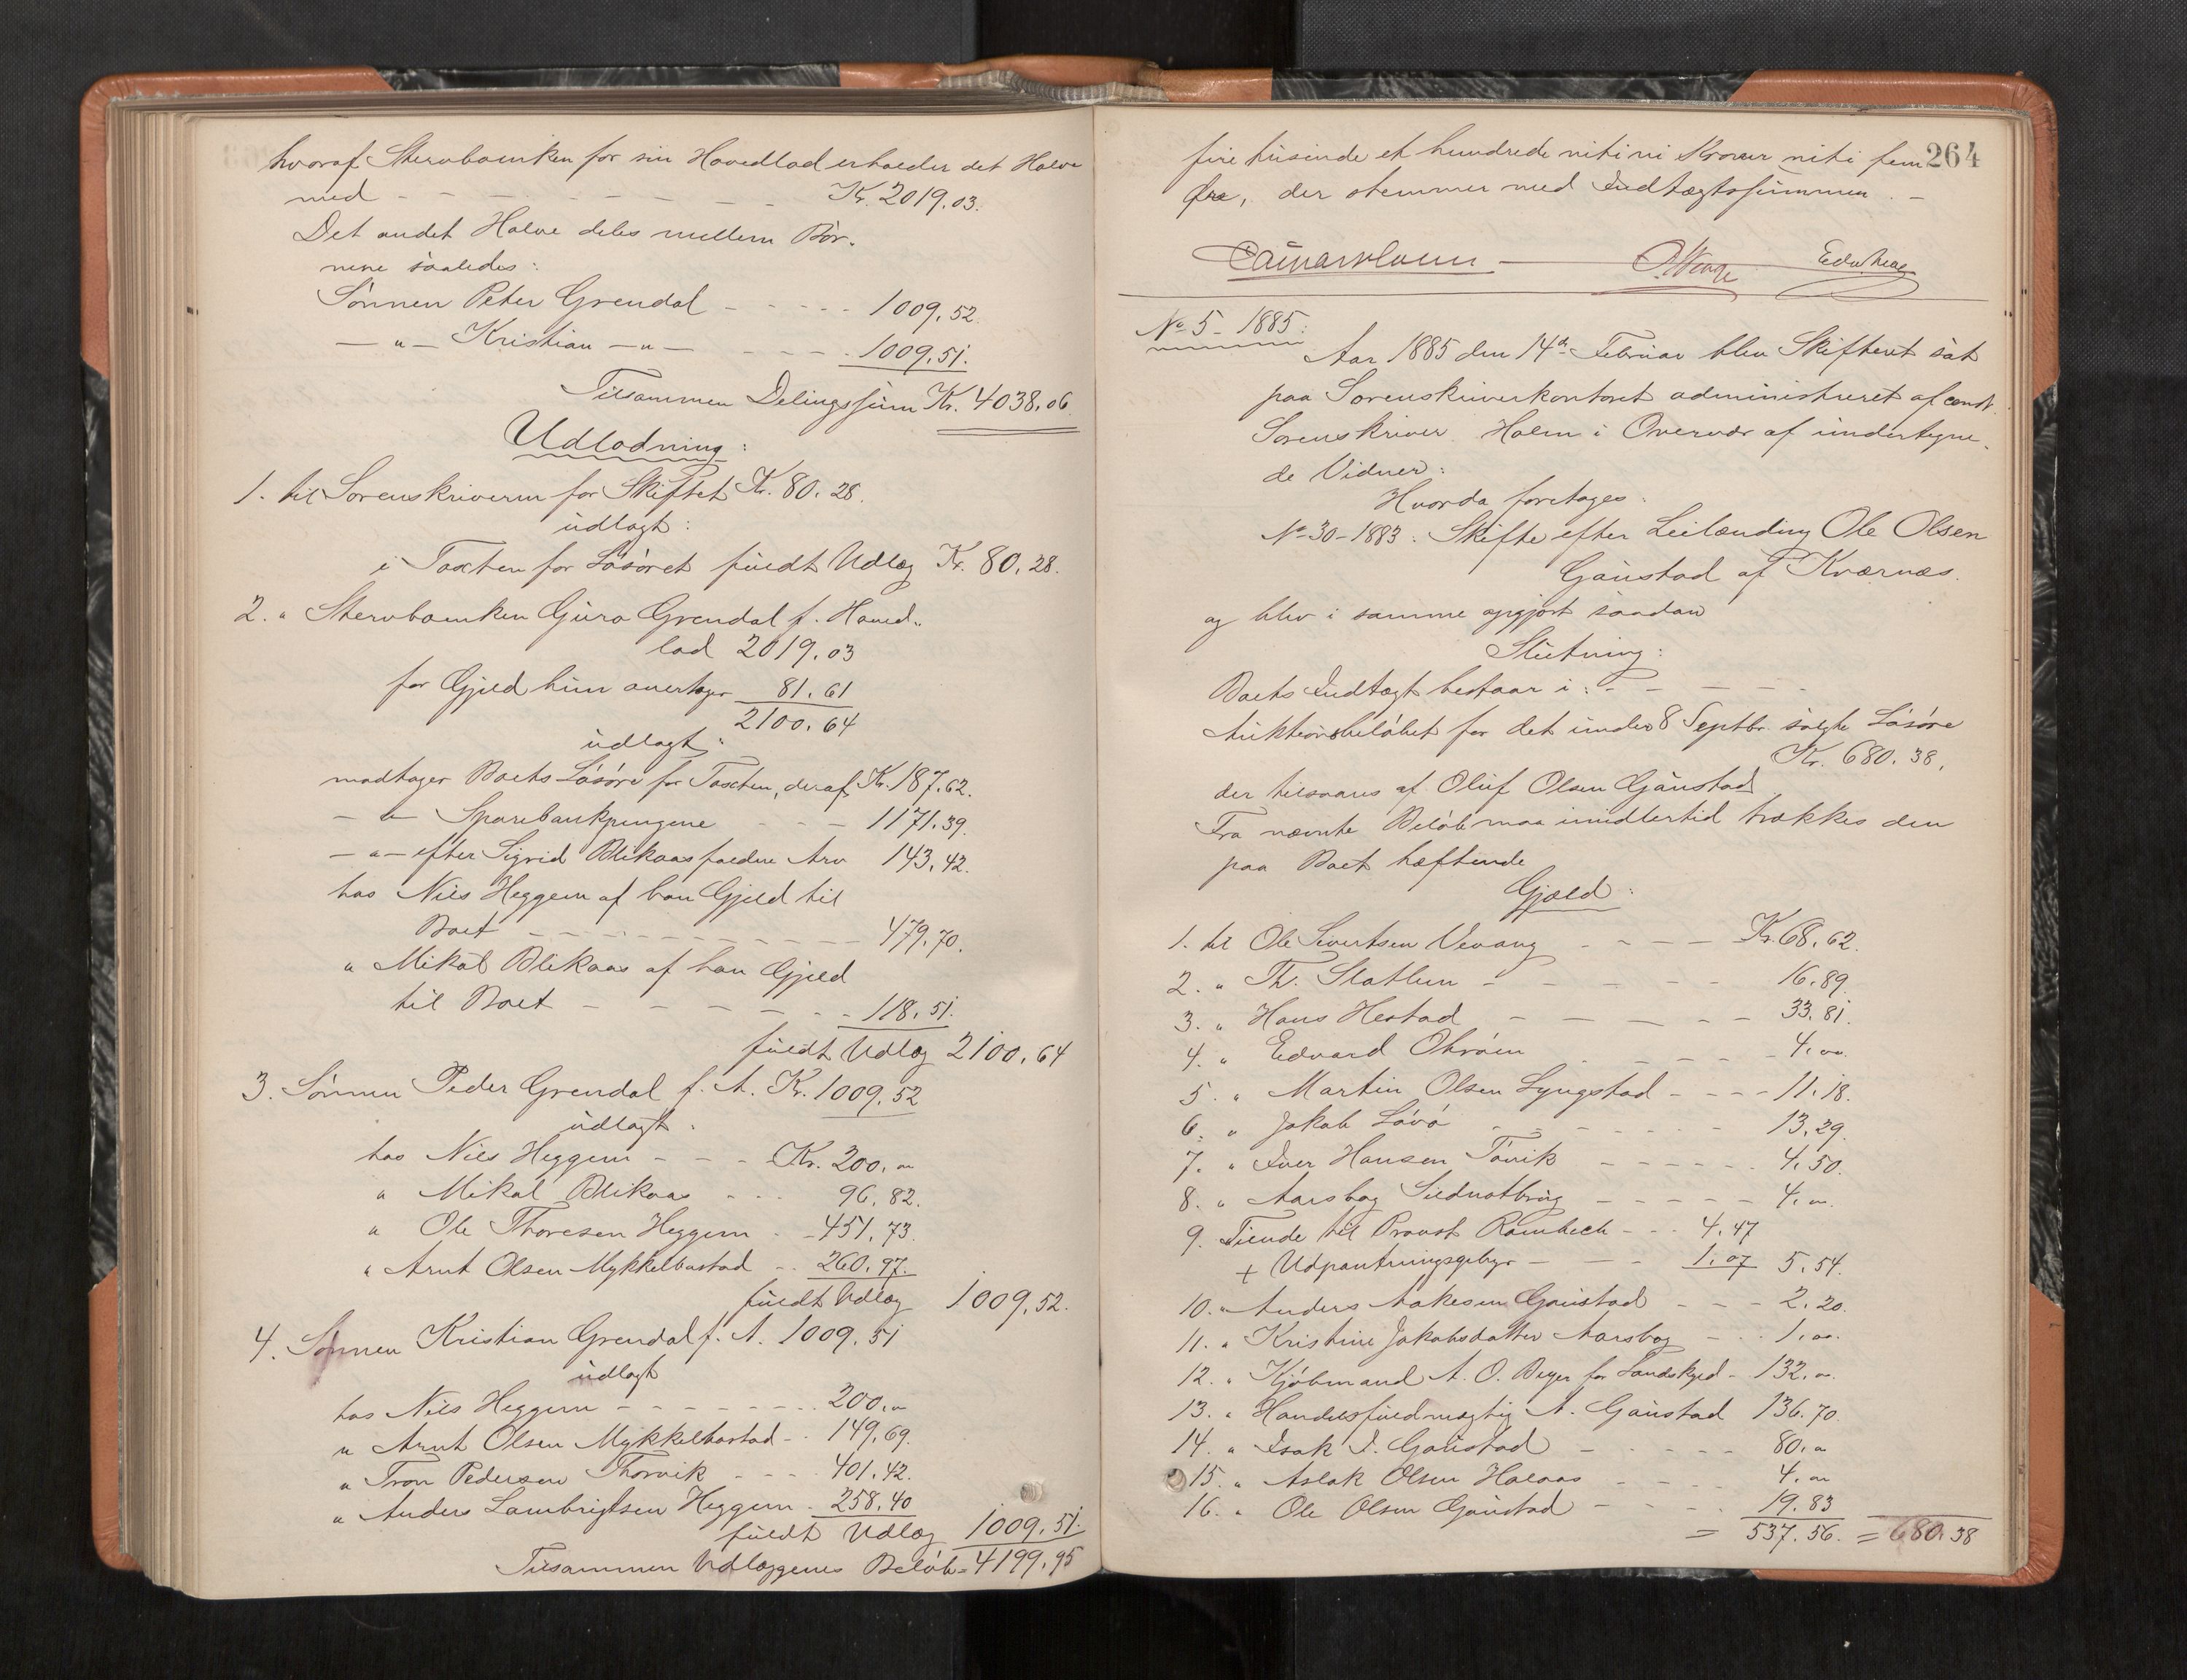 hvoraf Stervboenken for sin Hovedlod erholder det Halve
med - - - - - - - Kr. 2019.03.
Det andet Halve deles mellem Bør-
nene saaledes:
Sønnen Peter Grendal - - - - - 1009.52
— " — Kristian — " — - - - - 1009.51.
Tilsammen Delingssum Kr. 4038.06.
Udlodning:
1. til Sorenskriveren for Skiftet Kr. 80.28.
udlagt:
i Taxten for Løsøret fuldt Udlæg Kr. 80.28.
2. " Stervboenken Guro Grendal f. Hoved-
lod 2019.03
for Gjeld hun overtager 81.61
2100.64
udlagt:
modtager Boets Løsøre for Taxten, deraf Kr. 187.62.
— " — Sparebankpengene - - - 1171.39.
— " — efter Sigrid Blikaas faldne Arv 143.42.
hos Nils Heggem af han Gjeld til
Boet - - - - - - - - - 479.70.
" Mikal Blikaas af han Gjeld
til Boet - - - - - - 118.51.
fuldt Udlæg 2100.64
3. Sønnen Peder Grendal f. A. Kr. 1009.52
udlagt:
hos Nils Heggem - - - Kr. 200. "
" Mikal Blikaas - - - 96.82.
" Ole Thoresen Heggem - - 451.73.
" Arnt Olsen Mykkelbostad - - 260.97.
fuldt Udlæg 1009.52.
4. Sønnen Kristian Grendal f. A. 1009.51
udlagt
hos Nils Heggem - - - - - - - 200. "
" Arnt Olsen Mykkelbostad - - 149.69.
" Tron Pedersen Thorvik - - - 401.42.
" Anders Lambrigtsen Heggem - 258.40
fuldt Udlæg 1009.51.
Tilsammen Udlæggenes Beløb = 4199.95
264
fire tusinde et hundrede niti ni Kroner niti fem
Øre, der stemmer med Indtægtssummen. —
No 5 - 1885:
Aar 1885 den 14de Februar blev Skifteret sat
paa Sorenskriverkontoret administreret af const.
Sorenskriver Holm i Overvær af undertegne-
de Vidner:
Hvorda foretoges:
No 30 - 1883. Skifte efter Leilænding Ole Olsen
Gaustad af Kværnæs.
og blev i samme opgjort saadan
Slutning:
Boets Indtægt bestaar i: - - - - -
Auktionsbeløbet for det under 8 Septbr. solgte Løsøre
Kr. 680.38.
der tilsvares af Oluf Olsen Gaustad
Fra nævnte Beløb maa imidlertid trækkes den
paa Boet hæftende
Gjæld:
1. til Ole Sivertsen Vevang - - - - Kr. 68.62.
2. " Th. Slatlem - - - - - - 16.89.
3. " Hans Hestad - - - - - - 33.81.
4. " Edvard - - - - - 4.00.
5. " Martin Olsen Lyngstad - - - - 11.18.
6. " Jakob Løvø - - - - - - - 13.29.
7. " Iver Hansen Tøvik - - - - - - 4.50.
8. " Aarsbog Sildnotbrug - - - - - 4. "
9. Tiende til Provst Rambech - - - 4.47
+ Udpantningsgebyr - - - 1.07 5.54.
10. " Anders Aakesen Gaustad - - - 2.20.
11. " Kristine Jakobsdatter Aarsbog - - - 1.00.
12. " Kjøbmand A. O. Beyer for Landskyld - 132. "
13. " Handelsfuldmægtig A. Gaustad 136.70.
14. " Isak I. Gaustad - - - - - 80. "
15. " Aslak Olsen Halaas - - - 4. "
16. " Ole Olsen Gaustad - - - - 19.83
= 537.56. = 680.38